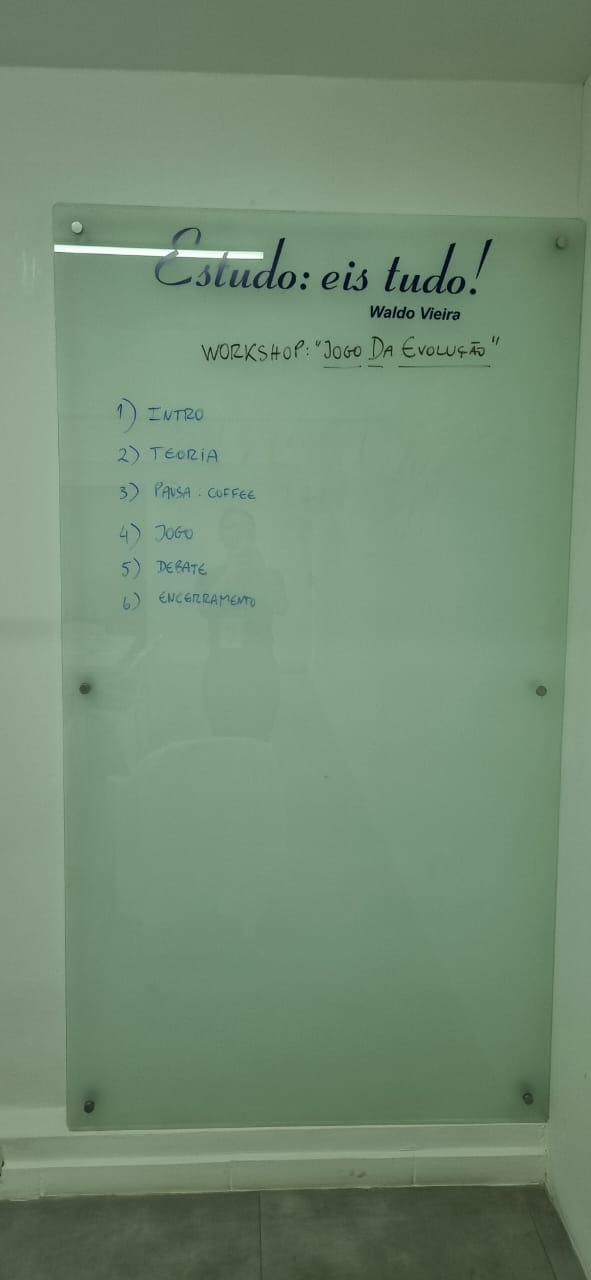 Estudo: eis tudo!
Waldo Vieira
WORKSHOP: "JOGO DA EVOLUÇÃO"
1) INTRO
2) TEORIA
3) PAUSA: COFFEE
4) JOGO
5) DEBATE
6) ENCERRAMENTO